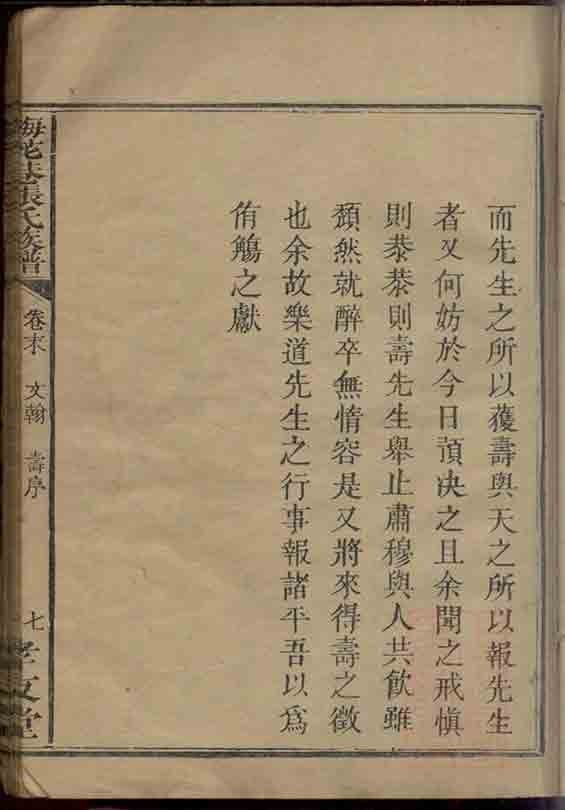 而先生之所以獲壽與天之所以報先生
者又何妨於今日預决之且余聞之戒慎
則恭恭則壽先生舉止肅穆與人共飲雖
頹然就醉卒無惰容是又將來得壽之徵
也余故樂道先生之行事報諸平吾以爲
侑觴之獻
張氏族譜
卷末 文翰 壽序
七
孝友堂